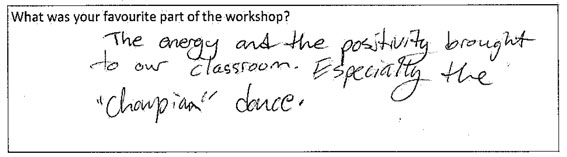 What was your favourite part of the workshop?
The energy and the positivity brought
to our classroom. Especially the
"Champian" dance.